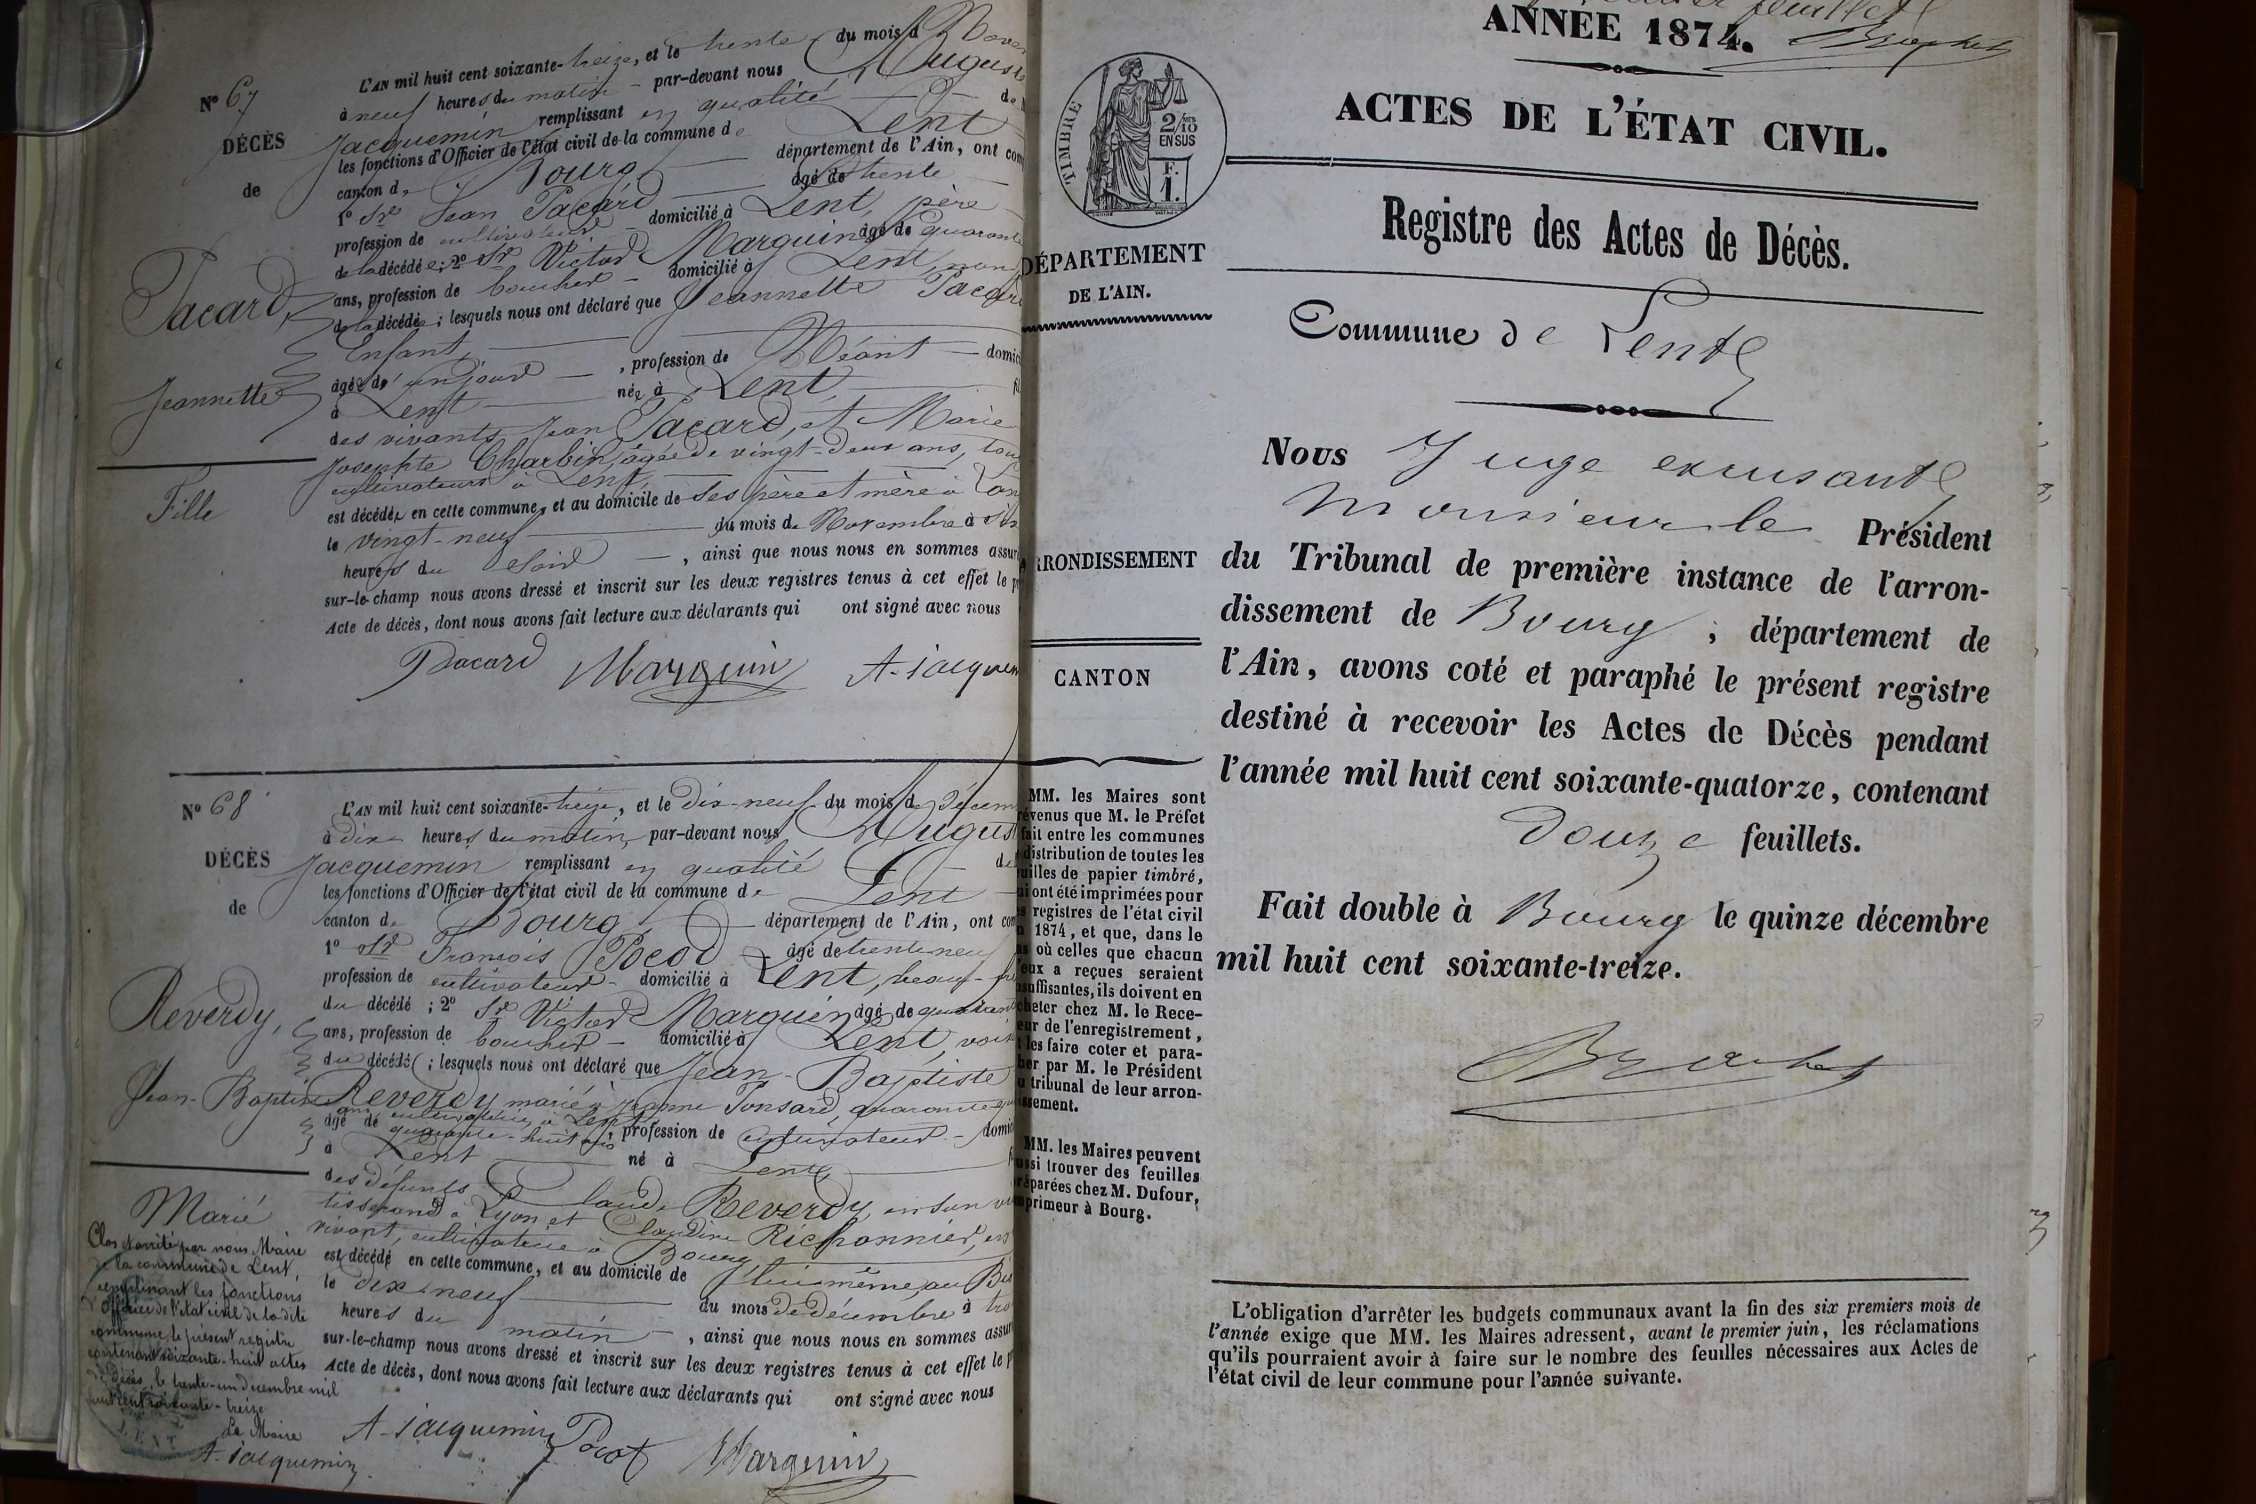 N° 67
DÉCÈS
de
Pacard,
Jeannette
Fille
L'AN mil huit cent soixante-treize, et le trente du mois d
à neuf heures du matin par-devant nous Auguste
Jacquemin remplissant en qualité de
les fonctions d'Officier de l'état civil de la commune de Lent
canton de Bourg département de l'Ain, ont com
1° Sr Jean Pacard âgé de trente
profession de cultivateur domicilié à Lent, père
de la décédée; 2° Sr Victor Marguin âgé de quarante
ans, profession de boucher domicilié à Lent, non
de la décédée; lesquels nous ont déclaré que Jeannette Pacard
Enfant,
âgée d'un jour, profession de Néant domici
à Lent née à Lent, fil
des vivants Jean Pacard, et Marie
Josephte Charbin, âgée de vingt-deux ans, tous
cultivateurs à Lent,
est décédée en cette commune, et au domicile de ses père et mère à
le vingt-neuf du mois de Novembre à six
heures du soir, ainsi que nous nous en sommes assur
sur-le-champ nous avons dressé et inscrit sur les deux registres tenus à cet effet le p
Acte de décès, dont nous avons fait lecture aux déclarants qui ont signé avec nous
Pacard Marguin A. Jacquem
N° 68
DÉCÈS
de
Reverdy,
Jean-Baptiste
Marié
L'AN mil huit cent soixante-treize, et le dix-neuf du mois de Décem
à dix heures du matin, par-devant nous August
Jacquemin remplissant en qualité de
les fonctions d'Officier de l'état civil de la commune de Lent
canton de Bourg département de l'Ain, ont com
1° Sr François Pocod âgé de trente-neuf
profession de cultivateur domicilié à Lent, beau-frè
du décédé; 2° Sr Victor Marguin âgé de quarant
ans, profession de boucher domicilié à Lent, voisi
du décédé; lesquels nous ont déclaré que Jean-Baptiste
Reverdy marié à Jeanne Ponsard, quarante
ans, cultivatrice à Lent
âgé de quarante-huit ans, profession de cultivateur domici
à Lent né à Lent, f
des défunts Claude Reverdy, en son vi
tisserand à Lyon, et Claudine Richonnier, en
vivant, cultivatrice à Bourg
est décédé en cette commune, et au domicile de lui-même, au
le dix-neuf du mois de décembre à tro
heures du matin, ainsi que nous nous en sommes assur
sur-le-champ nous avons dressé et inscrit sur les deux registres tenus à cet effet le p
Acte de décès, dont nous avons fait lecture aux déclarants qui ont signé avec nous
A. Jacquemin Pocot Marguin
Clos et arrêté par nous Maire
de la commune de Lent,
remplissant les fonctions
d'Officier de l'état civil de la dite
commune, le présent registre
contenant soixante-huit actes
de décès, le trente-un décembre mil
huit cent soixante-treize
Le Maire
A. Jacquemin
LENT
feuillet
Brachet
ANNÉE 1874.
ACTES DE L'ÉTAT CIVIL.
TIMBRE
2/10
EN SUS
F.
1.
Registre des Actes de Décès.
DÉPARTEMENT
DE L'AIN.
Commune de Lent
Nous Juge excusant
Monsieur le Président
du Tribunal de première instance de l'arron-
dissement de Bourg, département de
l'Ain, avons coté et paraphé le présent registre
destiné à recevoir les Actes de Décès pendant
l'année mil huit cent soixante-quatorze, contenant
Douze feuillets.
Fait double à Bourg le quinze décembre
mil huit cent soixante-treize.
Brachet
RRONDISSEMENT
CANTON
MM. les Maires sont
révenus que M. le Préfet
fait entre les communes
distribution de toutes les
uilles de papier timbré,
ui ont été imprimées pour
s registres de l'état civil
1874, et que, dans le
as où celles que chacun
eux a reçues seraient
suffisantes, ils doivent en
cheter chez M. le Rece-
eur de l'enregistrement,
les faire coter et para-
her par M. le Président
u tribunal de leur arron-
ssement.
MM. les Maires peuvent
ussi trouver des feuilles
réparées chez M. Dufour,
mprimeur à Bourg.
L'obligation d'arrêter les budgets communaux avant la fin des six premiers mois de
l'année exige que MM. les Maires adressent, avant le premier juin, les réclamations
qu'ils pourraient avoir à faire sur le nombre des feuilles nécessaires aux Actes de
l'état civil de leur commune pour l'année suivante.